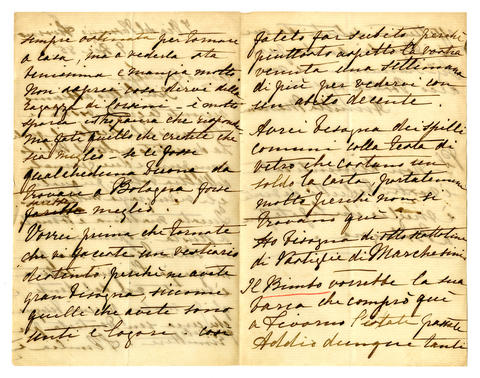 sempre ostinata per tornare
a casa, ma a vederla sta
benissimo e mangia molto
Non saprei cosa dirvi della
ragazza di è molto
sporca che
ma fate quello che credete che
sia meglio se ci fosse
qualcheduna buona da
trovare a Bologna forse
sarebbe meglio.
Vorrei prima che tornate
che vi faceste un vestiario
distinto, perchè ne avete
gran bisogno, siccome
quelli che avete sono
unti e logori così
fatelo far subito perchè
piuttosto aspetto la vostra
venuta una settimana
di più per vedervi con
un abito decente.
Avrei bisogno dei spilli
comuni colla testa di
vetro che costano un
soldo la carta, portatemene
molte perchè non si
trovano qui
Ho bisogno di scattoline
di Pastiglie di Marchesini
Il Bimbo vorrebbe la sua
barca che comprò qui
a Livorno
Addio dunque tanti